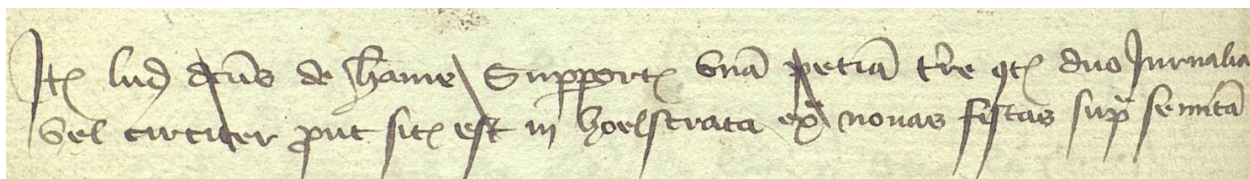 Itꝭ lud dcūs de hame Supportꝭ vnā petiā tr̄re qtꝭ duo Jurnalia
vel circiter ꝓut sitꝭ est in hoelstrata ex̄ novas fistas sup̄ semitā